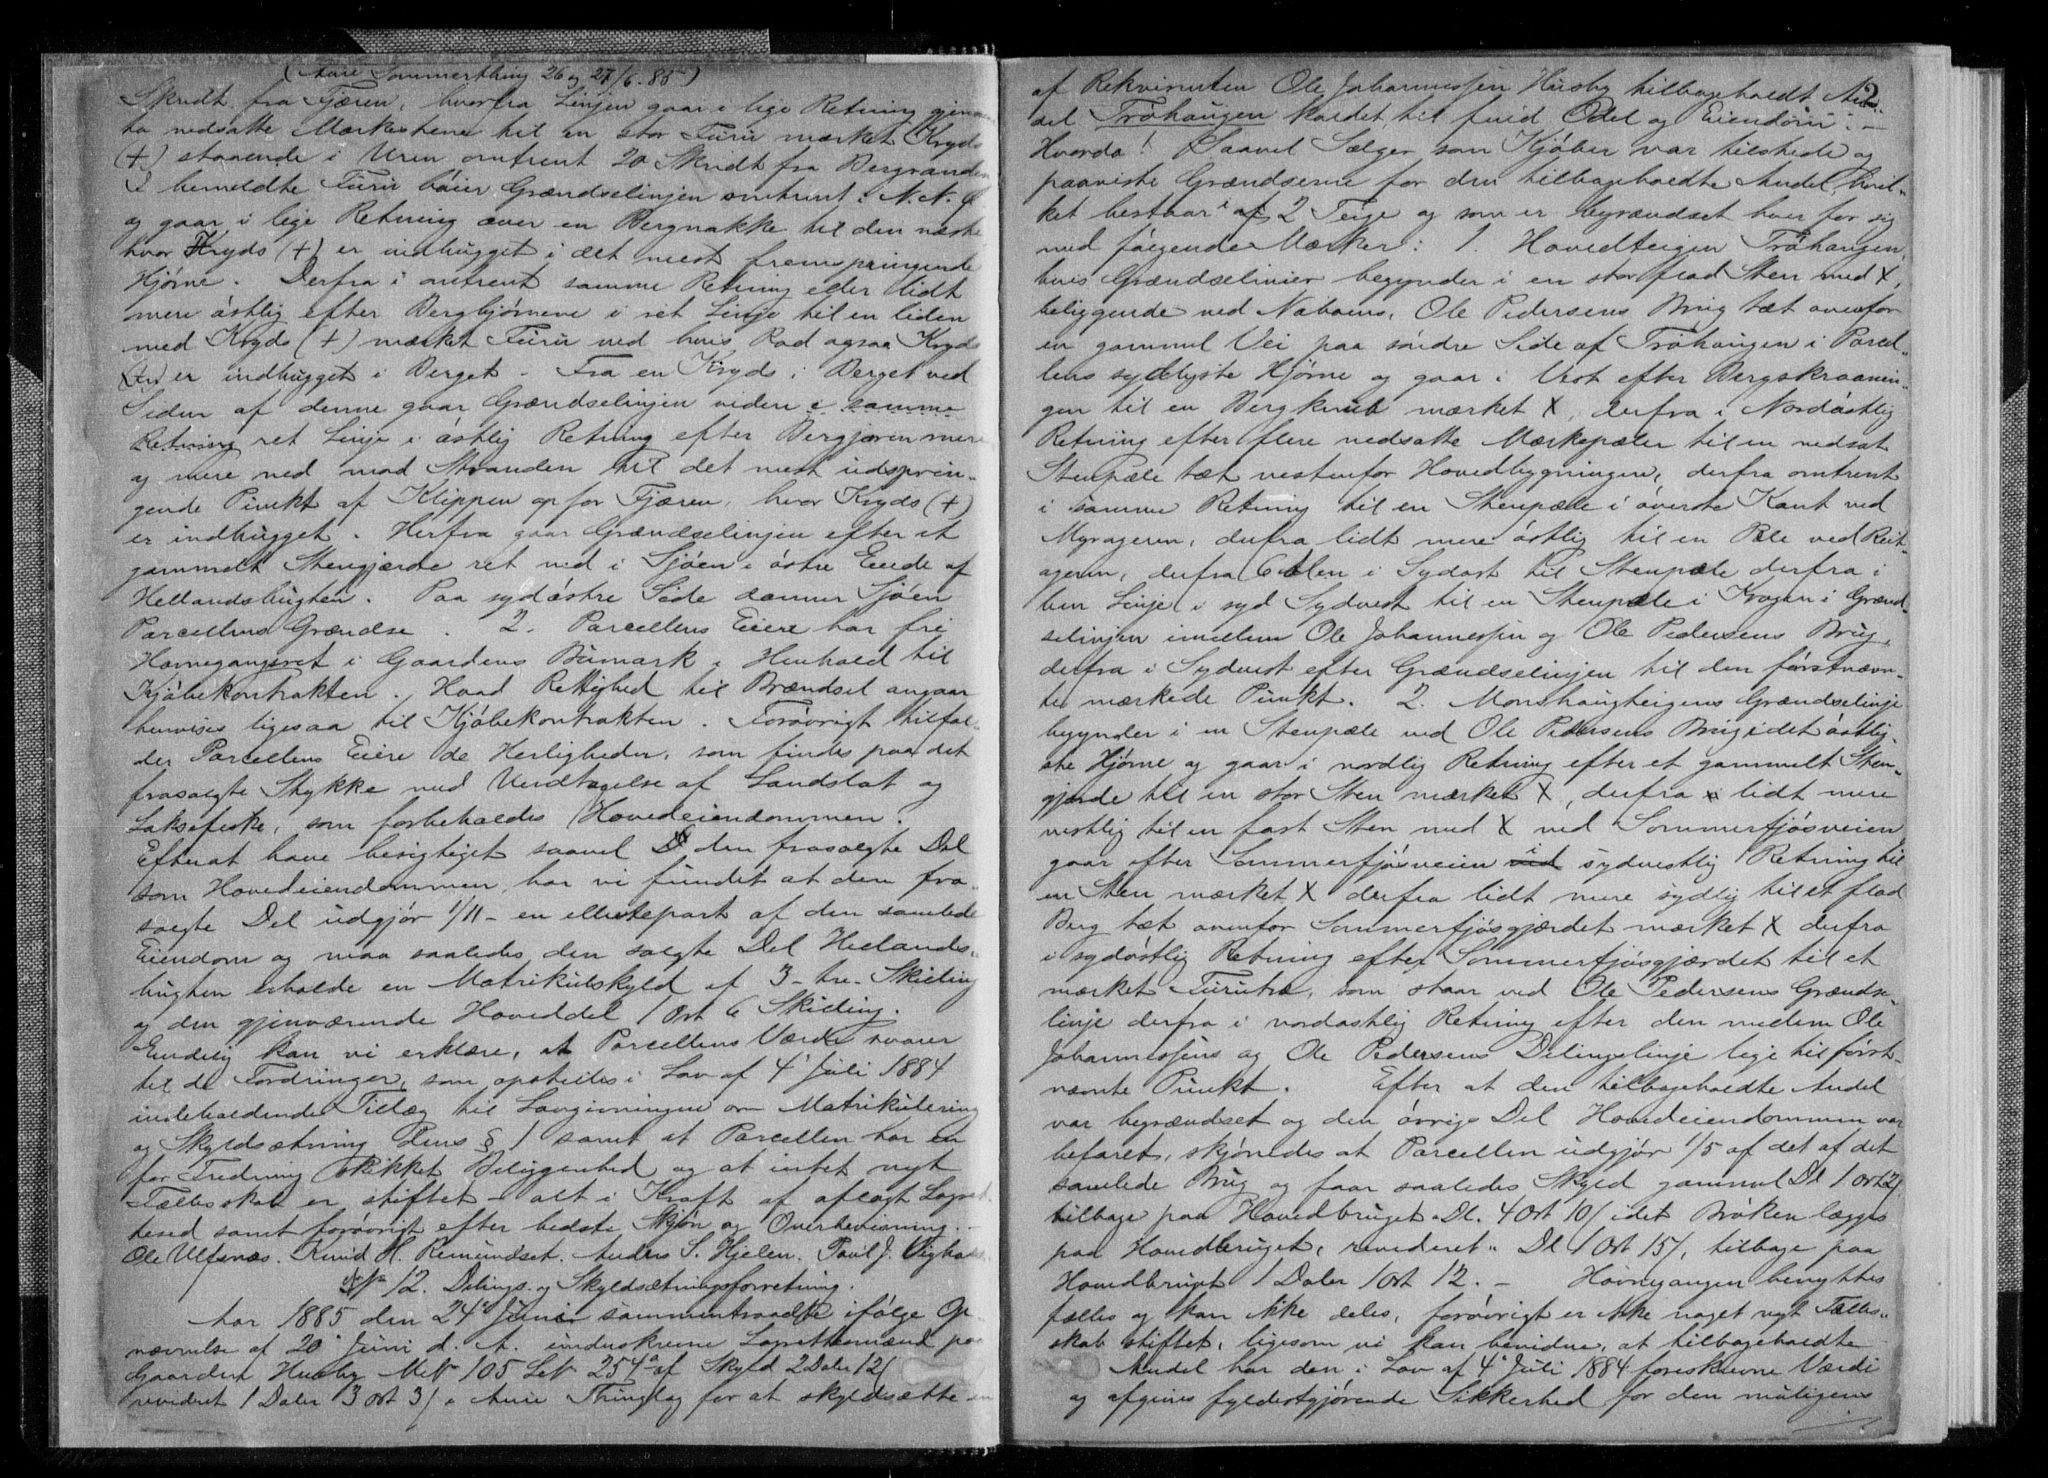 (Aure Sommerthing 26 og 27/6. 85)
Skridt fra Fjæren, hvorfra Linjen gaar i lige Retning gjennem
to nedsatte Mærkestene til en stor Furu mærket Kryds
(+) staaende i Uren omtrent 20 Skridt fra Bergranden
I bemeldte Furu bøier Grændselinjen omtrent i N. N. Ø
og gaar i lige Retning over en Bergnakke til den næste
hvor Kryds (+) er indhugget i det mest fremspringende
Hjørne. Derfra i omtrent samme Retning eller lidt
mere østlig efter Berghjørnene i ret Linje til en liden
med Kryds (+) mærket Furu ved hvis Rod ogsaa Kryds
(+) er indhugget i Berget. Fra en Kryds i Berget ved
Siden af denne gaar Grændselinjen videre i samme
Retning ret Linje i østlig Retning efter Bergjøren mere
og mere ned mod Stranden til det mest udsprin-
gende Punkt af Klippen op for Fjæren, hvor Kryds (+)
er indhugget. Herfra gaar Grændselinjen efter et
gammelt Stengjærde ret ned i Sjøen i østre Ende af
Hellandsbugten. Paa sydøstre Side danner Sjøen
Parcellens Grændse. 2. Parcellens Eiere har fri
Havnegangsret i Gaardens Bumark i Henhold til
Kjøbekontrakten. Hvad Rettighed til Brændsel angaar
henvises ligesaa til Kjøbekontrakten. Forøvrigt tilfal-
der Parcellens Eiere de Herligheder, som findes paa det
frasolgte Stykke med Undtagelse af Landslot og
Laksefiske, som forbeholdes Hovedeiendommen.
Efterat have besigtiget saavel den frasolgte Del
som Hovedeiendommen, har vi fundet at den fra-
solgte Del udgjør 1/11 - en ellevtepart af den samlede
Eiendom og maa saaledes den solgte Del Hellands-
bugten erholde en Matrikulskyld af 3 - tre - Skilling
og den gjenværende Hoveddel 1 Ort 6 Skilling.
Endelig kan vi erklære, at Parcellens Værdi svarer
til de Fordringer, som opstilles i Lov af 4' Juli 1884
indeholdende Tillæg til Lovgivningen om Matrikulering
og Skyldsætning dens § 1 samt at Parcellen har en
for Fredning skikket Beliggenhed og at intet nyt
Fællesskab er stiftet - alt i Kraft af aflagt Lagret-
tesed samt forøvrigt efter bedste Skjøn og Overbevisning.
Ole Ulfsnæs. Knud H. Remundset. Anders S. Hjelen. Paul J.
No 12. Delings- og Skyldsætningsforretning.
Aar 1885 den 24' Juni sammentraadte ifølge Op-
nævnelse af 20' Juni d. A. underskrevne Lagrettemænd paa
Gaarden Husby MNo 105 LNo 254a af Skyld 2 Daler 12/
revideret 1 Daler 3 Ort 3/ i Aure Thinglag for at skyldsætte en
2
af Rekvirenten Ole Johannessen Husby tilbageholdt An-
del Trøhaugen kaldet, til fuld Odel og Eiendom: -
Hvorda! Saavel Sælger som Kjøber var tilstede og
paaviste Grændserne for den tilbageholdte Andel, hvil-
ket bestaar i af 2 Teige og som er begrændset hver for sig
med følgende Mærker: 1. Hovedteigen Trøhaugen,
hvis Grændselinier begynder i en stor flad Sten med X,
beliggende ved Naboens, Ole Pedersens Brug tæt ovenfor
en gammel Vei paa søndre Side af Trøhaugen i Parcel-
lens sydligste Hjørne og gaar i Vest efter Bergskraanin-
gen til en Bergknub mærket X, derfra i Nordøstlig
Retning efter flere nedsatte Mærkepæler til en nedsat
Stenpæle tæt vestenfor Hovedbygningen, derfra omtrent
i samme Retning til en Stenpæle i øverste Kant ved
Myrageren, derfra lidt mere østlig til en Pæle ved Reit-
ageren, derfra 6 Alen i Sydost til Stenpæle derfra i
ben Linje i syd Sydvest til en Stenpæle i Krogen i Grænd-
selinjen imellem Ole Johannessen og Ole Pedersens Brug,
derfra i Sydvest efter Grændselinjen til den førstnævn-
te mærkede Punkt. 2. Monshaugteigens Grændselinje
begynder i en Stenpæle ved Ole Pedersens Brug i det østlig-
ste Hjørne og gaar i nordlig Retning efter et gammelt Sten-
gjærde til en stor Sten mærket X, derfra lidt mere
vestlig til en fast Sten med X ved Sommerfjøsveien
gaar efter Sommerfjøsveien i sydvestlig Retning til
en Sten mærket X derfra lidt mere sydlig til et flad
Berg tæt ovenfor Sommerfjøsgjærdet mærket X derfra
i sydøstlig Retning efter Sommerfjøsgjærdet til et
mærket Furutræ, som staar ved Ole Pedersens Grændse-
linje derfra i nordøstlig Retning efter den mellem Ole
Johannessens og Ole Pedersens Delingslinje lige til først-
nævnte Punkt. Efter at den tilbageholdte Andel
var begrændset og den øvrige Del Hovedeiendommen var
befaret, skjøndes at Parcellen udgjør 1/5 af det af det
samlede Brug og faar saaledes Skyld gammel Dl 1 Ort 2/
tilbage paa Hovedbruget Dl. 4 Ort 10/ idet Brøken lægges
paa Hovedbruget, revideret " Dl 1 Ort 15/, tilbage paa
Hovedbruget 1 Daler 1 Ort 12. - Havnegangen benyttes
fælles og kan ikke deles, forøvrigt er ikke noget nyt Fælles-
skab stiftet, ligesom vi kan bevidne, at tilbageholdte
Andel har den i Lov af 4' Juli 1884 foreskrevne Værdi
og afgives fyldestgjørende Sikkerhed for den muligens